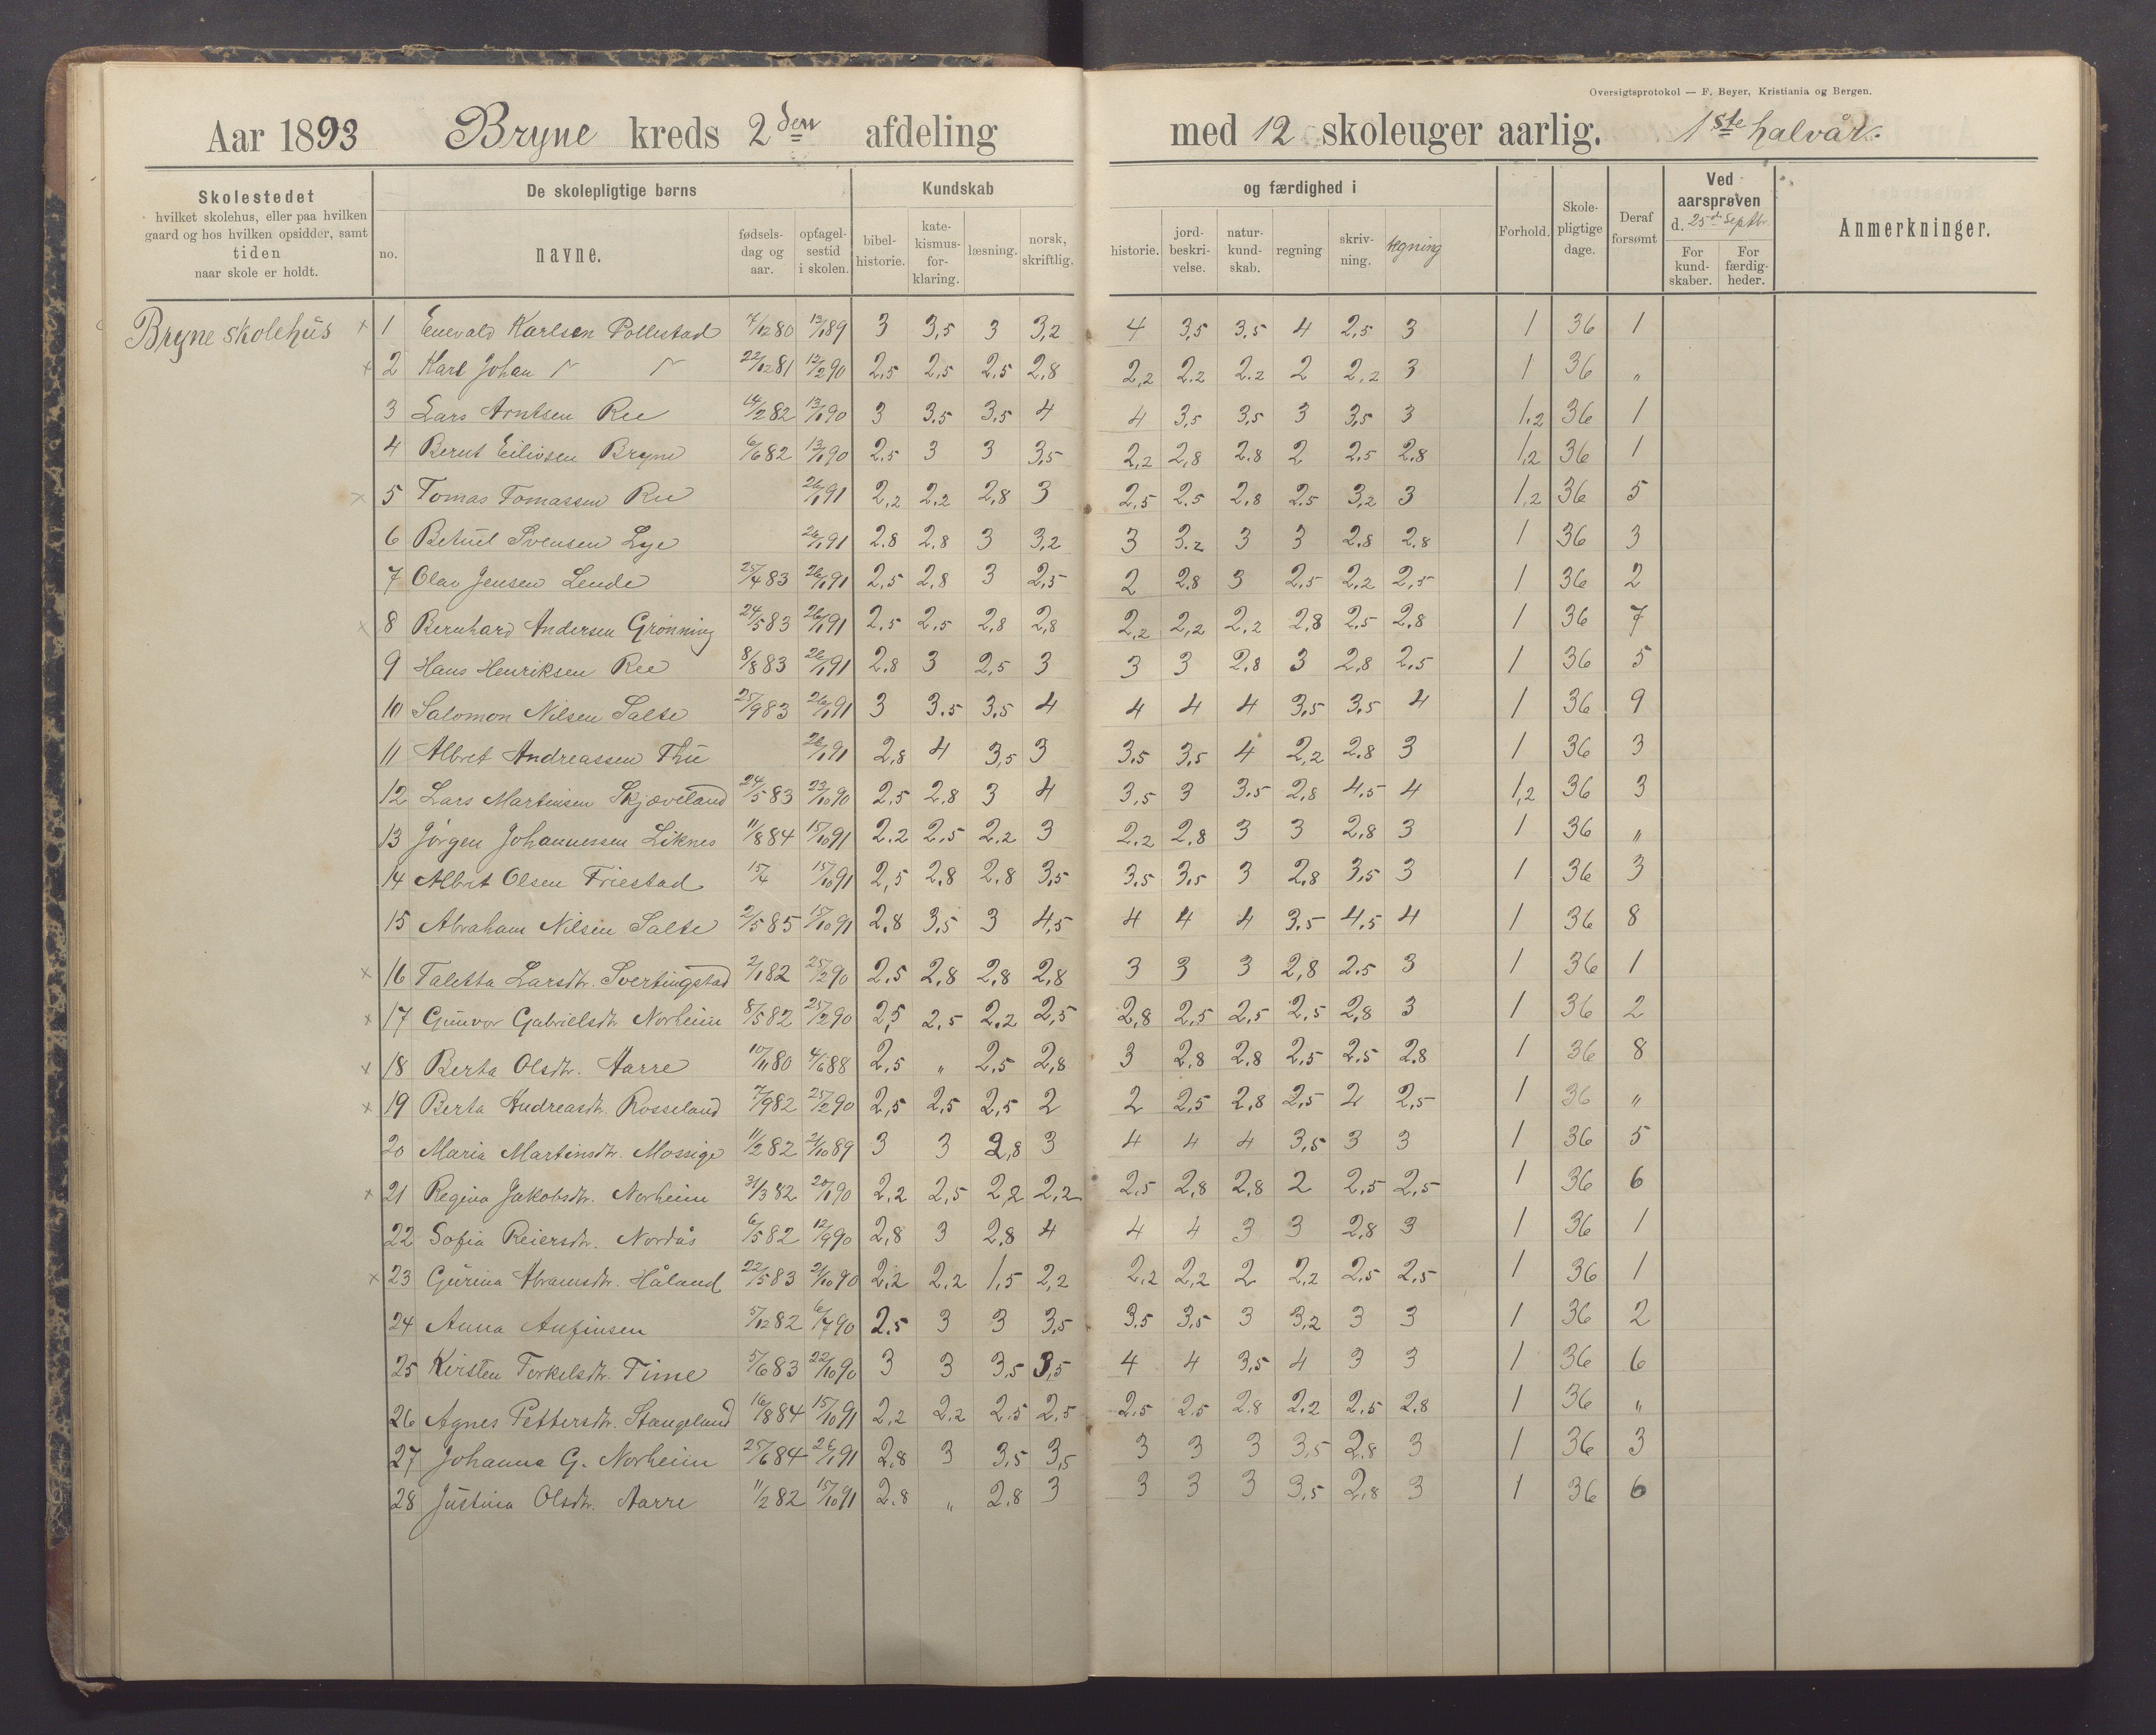 Oversigtsprotokol — F. Beyer, Kristiania og Bergen.
Aar 1893 Bryne kreds 2den afdeling med 12 skoleuger aarlig. 1ste halvår.
Skolestedet
hvilket skolehus, eller paa hvilken
gaard og hos hvilken opsidder, samt
tiden
naar skole er holdt.
De skolepligtige børns
no. navne. fødsels-dag og aar. optagel-sestid i skolen.
Kundskab og færdighed i
bibel-historie. kate-kismus-for-klaring. læsning. norsk, skriftlig. historie. jord-beskri-velse. natur-kund-skab. regning skriv-ning. tegning
Forhold. Skole-pligtige dage. Deraf forsømt
Ved aarsprøven d. 25de Septbr. For kund-skaber. For færdig-heder.
Anmerkninger.
Bryne skolehus × 1 Enevald Karlsen Pollestad 7/12 80 13/1 89 3 3,5 3 3,2 4 3,5 3.5 4 2,5 3 1 36 1
× 2 Karl Johan " " 22/12 81 12/2 90 2,5 2,5 2,5 2,8 2,2 2.2 2.2 2 2,2 3 1 36 "
3 Lars Arntsen Ree 14/2 82 13/1 90 3 3.5 3.5 4 4 3,5 3,5 3 3,5 3 1,2 36 1
4 Bernt Eilivsen Bryne 6/6 82 13/1 90 2.5 3 3 3,5 2,2 2,8 2.8 2 2.5 2.8 1,2 36 1
× 5 Tomas Tomassen Ree 26/1 91 2,2 2.2 2,8 3 2,5 2.5 2,8 2.5 3,2 3 1,2 36 5
6 Betuel Svensen Lye 26/1 91 2.8 2,8 3 3,2 3 3.2 3 3 2.8 2.8 1 36 3
7 Olav Jensen Lende 25/4 83 26/1 91 2,5 2,8 3 2,5 2 2.8 3 2.5 2,2 2,5 1 36 2
× 8 Bernhard Andersen Grönning 24/5 83 26/1 91 2.5 2,5 2,8 2,8 2,2 2,2 2,2 2,8 2.5 2.8 1 36 7
9 Hans Henriksen Ree 8/8 83 26/1 91 2.8 3 2,5 3 3 3 2.8 3 2,8 2.5 1 36 5
10 Salomon Nilsen Salte 25/9 83 26/1 91 3 3.5 3,5 4 4 4 4 3,5 3.5 4 1 36 9
11 Albret Andreassen Thu 26/1 91 2,8 4 3,5 3 3.5 3,5 4 2,2 2.8 3 1 36 3
12 Lars Martinsen Skjæveland 24/5 83 23/10 90 2,5 2,8 3 4 3,5 3 3.5 2,8 4.5 4 1,2 36 3
13 Jörgen Johannessen Liknes 11/8 84 15/10 91 2.2 2,5 2,2 3 2,2 2,8 3 3 2,8 3 1 36 "
14 Albret Olsen Friestad 15/4 15/10 91 2,5 2,8 2.8 3,5 3.5 3,5 3 2,8 3,5 3 1 36 3
15 Abraham Nilsen Salte 2/5 85 15/10 91 2.8 3,5 3 4,5 4 4 4 3.5 4.5 4 1 36 8
× 16 Taletta Larsdtr. Svertingstad 2/1 82 25/2 90 2,5 2,8 2,8 2,8 3 3 3 2,8 2.5 3 1 36 1
× 17 Gunvor Gabrielsdtr Norheim 8/5 82 25/2 90 2,5 2,5 2,2 2,5 2,8 2,5 2,5 2,5 2,8 3 1 36 2
× 18 Berta Olsdtr. Aarre 10/11 80 4/6 88 2,5 " 2,5 2,8 3 2,8 2,8 2,5 2,5 2,8 1 36 8
× 19 Berta Andreasdtr. Rosseland 7/9 82 25/2 90 2,5 2,5 2,5 2 2 2,5 2,8 2,5 2 2,5 1 36 "
20 Maria Martinsdtr. Mossige 11/2 82 21/10 89 3 3 2,8 3 4 4 4 3,5 3 3 1 36 5
× 21 Regina Jakobsdtr. Norheim 31/3 82 20/1 90 2,2 2,5 2,2 2,2 2,5 2,8 2,8 2 2,5 2,5 1 36 6
22 Sofia Reiersdtr. Nordås 6/5 82 12/9 90 2,8 3 2,8 4 4 4 3 3 2,8 3 1 36 1
× 23 Gurina Abramsdtr. Håland 22/5 83 21/10 90 2,2 2,2 1,5 2,2 2,2 2,2 2 2,2 2,5 2,5 1 36 1
24 Anna Anfinsen 5/12 82 6/7 90 2.5 3 3 3,5 3.5 3,5 3 3,2 3 3 1 36 2
25 Kirsten Torkelsdtr. Time 5/6 83 22/10 90 3 3 3,5 3,5 4 4 3,5 4 3 3 1 36 6
26 Agnes Pettersdtr. Stangeland 16/8 84 15/10 91 2,2 2,2 2.5 2,5 2,5 2,5 2.8 2.2 2,5 2,8 1 36 "
27 Johanna G. Norheim 25/6 84 26/1 91 2,8 3 3,5 3,5 3 3 3 3,5 2,8 3 1 36 3
28 Justina Olsdtr. Aarre 11/2 82 15/10 91 2.8 " 2,8 3 3 3 3 3,5 2,8 3 1 36 6